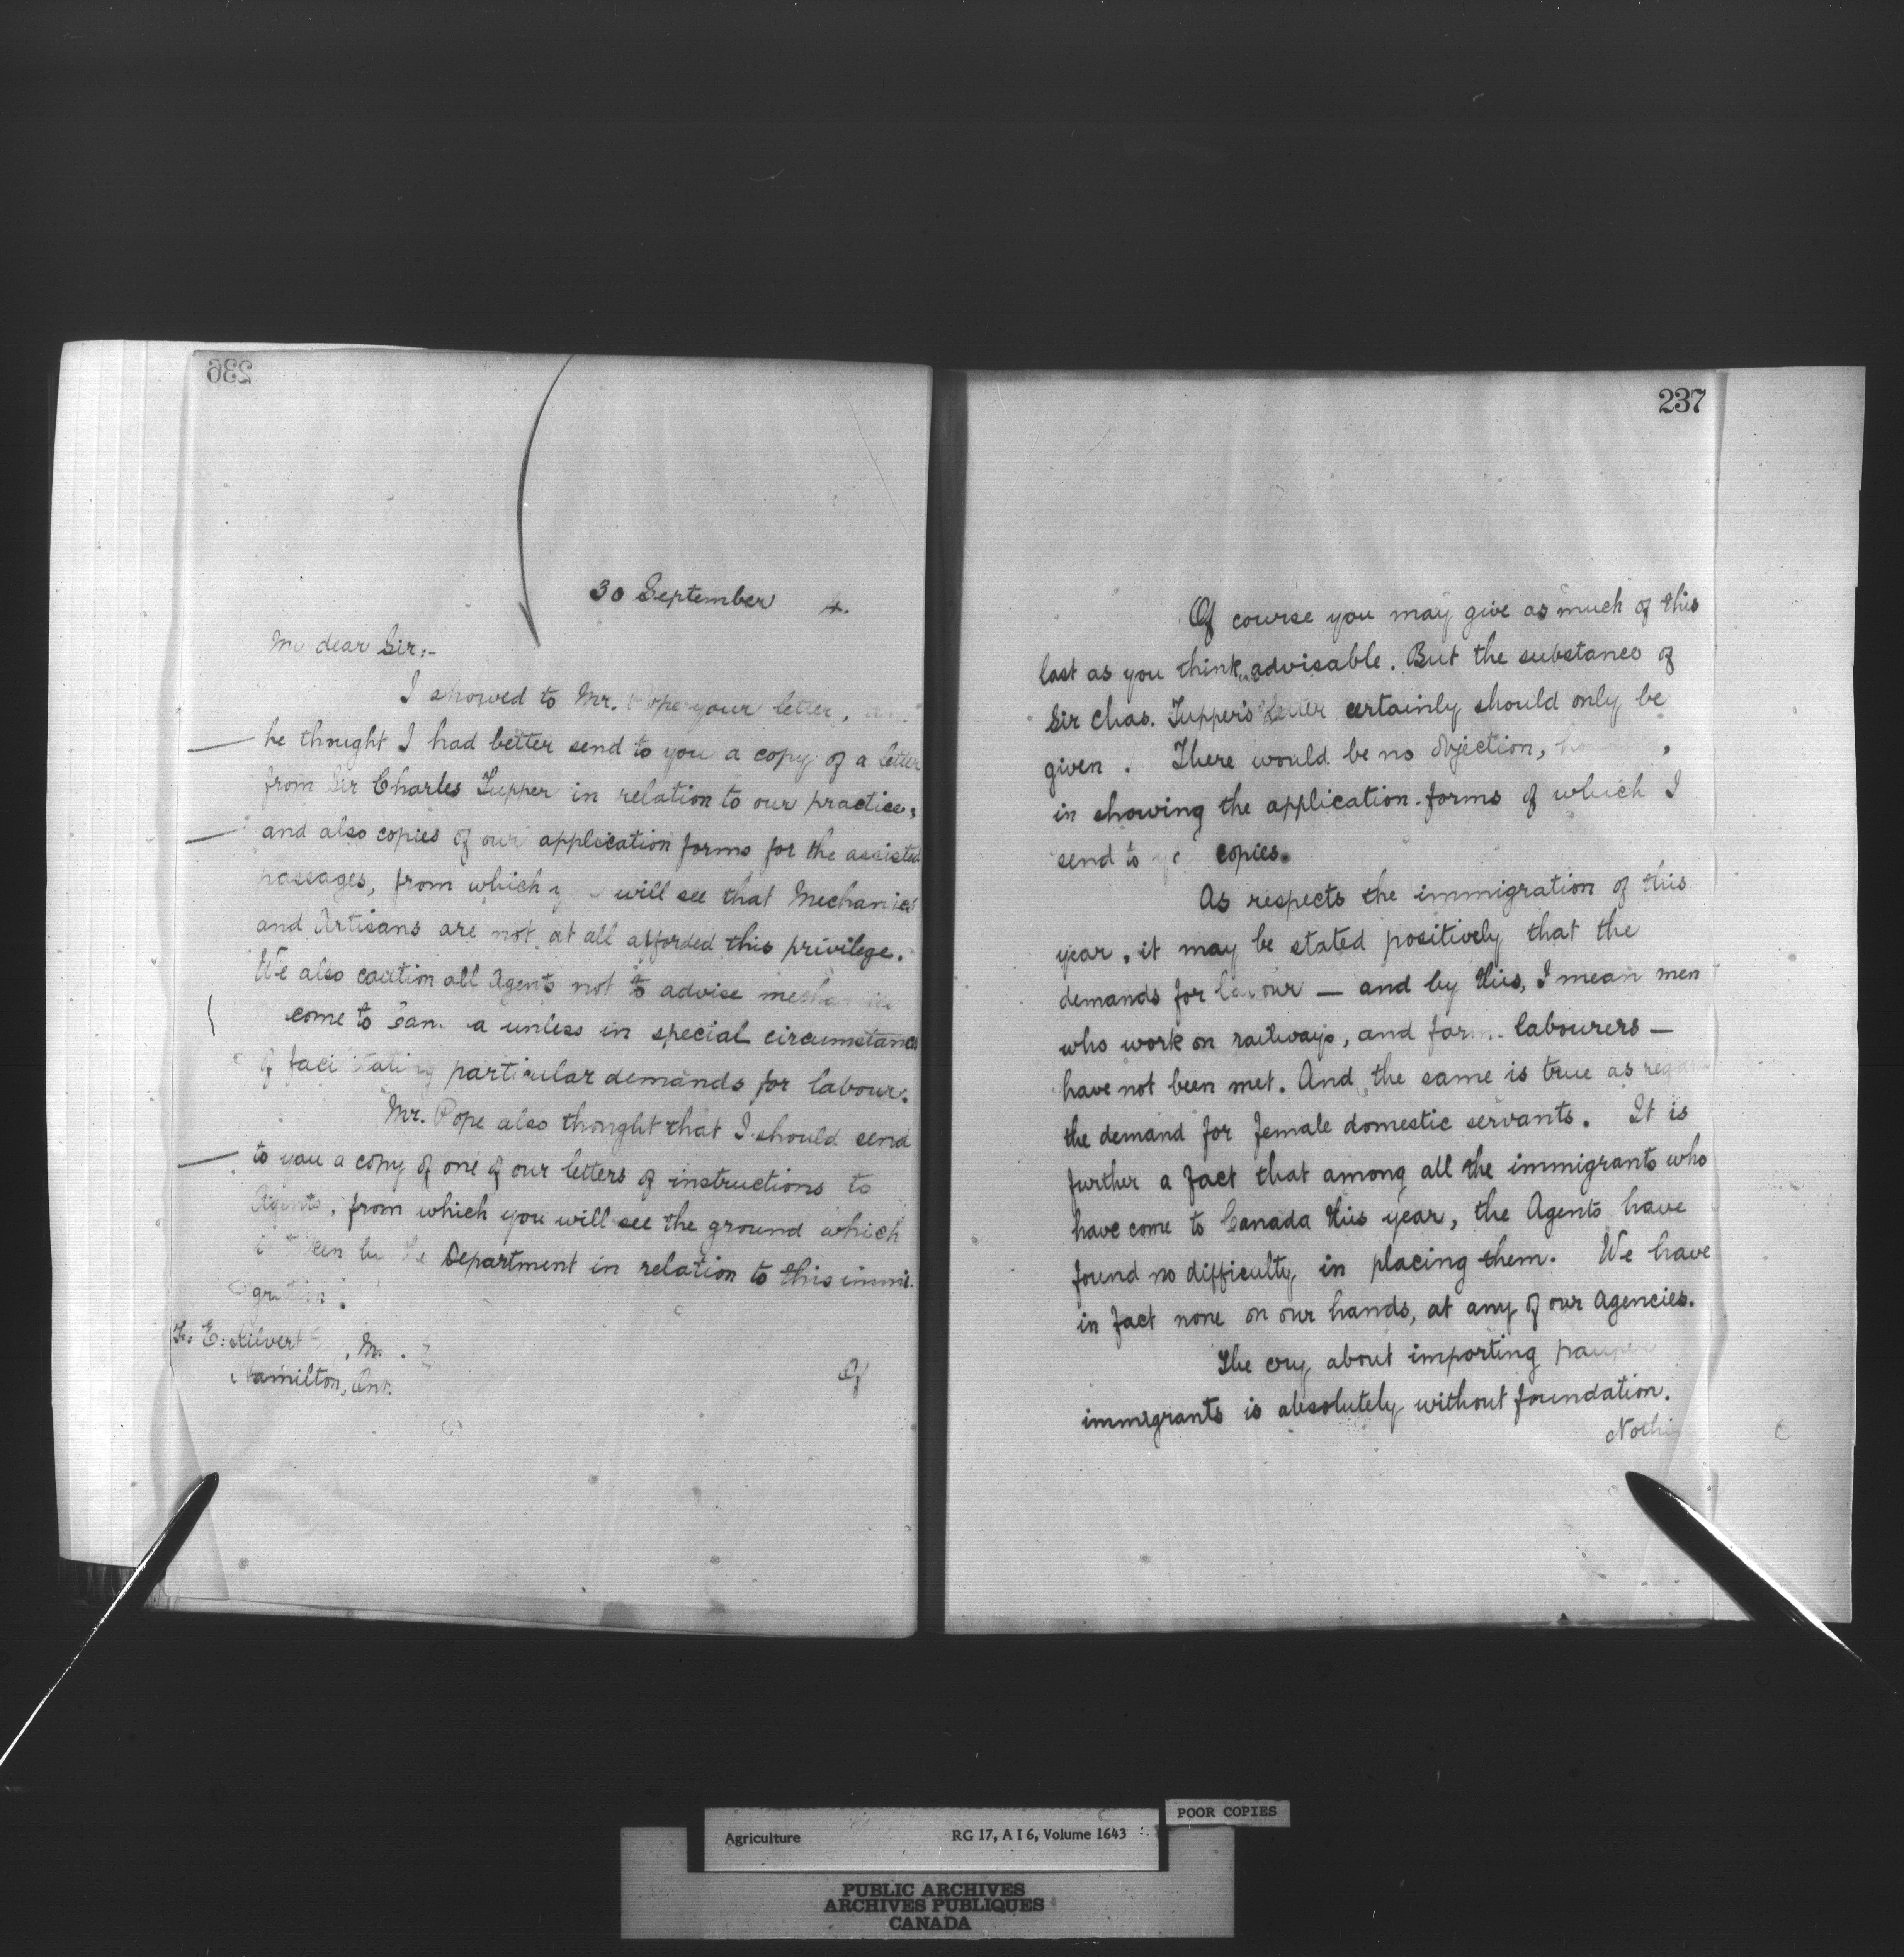 236
30 September 4.
My dear Sir:-
I showed to Mr. Pope your letter,
he thought I had better send to you a copy of a letter
from Sir Charles Tupper in relation to our practice,
and also copies of our application forms for the assisted
passages, from which will see that Mechanics
and Artisans are not at all afforded this privilege.
We also caution all Agents not to advise mechanics
come to unless in special circumstances
of facilitating particular demands for labour.
Mr. Pope also thought that I should send
to you a copy of one of our letters of instructions to
Agents, from which you will see the ground which
taken by the Department in relation to this immi-
gration.
F. E. Kilvert
Hamilton, Ont.
Of
237
Of course you may give as much of this
last as you think advisable. But the substance of
Sir Chas. Tupper's letter certainly should only be
given. There would be no objection, ,
in showing the application-forms of which I
send to copies.
As respects the immigration of this
year, it may be stated positively that the
demands for labour — and by this, I mean men
who work on railways, and farm labourers —
have not been met. And the same is true as regards
the demand for female domestic servants. It is
further a fact that among all the immigrants who
have come to Canada this year, the Agents have
found no difficulty in placing them. We have
in fact none on our hands, at any of our Agencies.
The cry about importing pauper
immigrants is absolutely without foundation.
Agriculture RG 17, A I 6, Volume 1643
POOR COPIES
PUBLIC ARCHIVES
ARCHIVES PUBLIQUES
CANADA